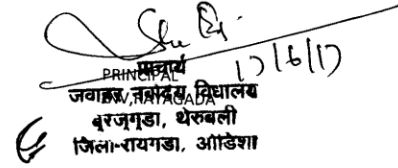 17/6/17
प्राचार्य
PRINCIPAL
जवाहर नवोदय विद्यालय
JNV, RAYAGADA
बूरजगुडा, थेरुबली
जिला-रायगडा, ओडिशा